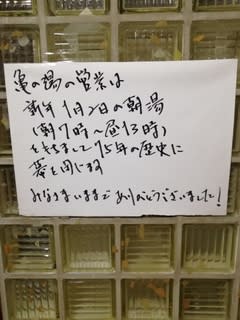 亀の湯の営業は
新年1月2日の朝湯
(朝7時〜昼13時)
をもちまして75年の歴史に
幕を閉じます
みなさまいままでありがとうございました!